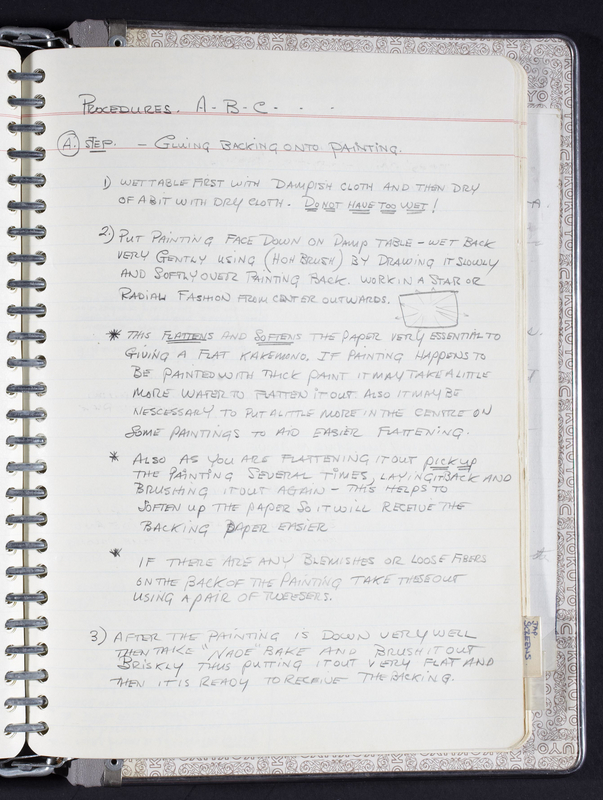 PROCEDURES. A - B - C - . .
A. STEP. - GLUING BACKING ONTO PAINTING.
1) WET TABLE FIRST WITH DAMPISH CLOTH AND THEN DRY
OF A BIT WITH DRY CLOTH. DO NOT HAVE TOO WET!
2) PUT PAINTING FACE DOWN ON DAMP TABLE - WET BACK
VERY GENTLY USING (HON BRUSH) BY DRAWING IT SLOWLY
AND SOFTLY OVER PAINTING BACK. WORK IN A STAR OR
RADIAL FASHION FROM CENTER OUTWARDS.
* THIS FLATTENS AND SOFTENS THE PAPER VERY ESSENTIAL TO
GIVING A FLAT KAKEMONO. IF PAINTING HAPPENS TO
BE PAINTED WITH THICK PAINT IT MAY TAKE A LITTLE
MORE WATER TO FLATTEN IT OUT. ALSO IT MAY BE
NESCESSARY TO PUT A LITTLE MORE IN THE CENTRE ON
SOME PAINTINGS TO AID EASIER FLATTENING.
* ALSO AS YOU ARE FLATTENING IT OUT PICK UP
THE PAINTING SEVERAL TIMES, LAYING IT BACK AND
BRUSHING IT OUT AGAIN - THIS HELPS TO
SOFTEN UP THE PAPER SO IT WILL RECEIVE THE
BACKING PAPER EASIER
* IF THERE ARE ANY BLEMISHES OR LOOSE FIBERS
ON THE BACK OF THE PAINTING TAKE THESE OUT
USING A PAIR OF TWEESERS.
3) AFTER THE PAINTING IS DOWN VERY WELL
THEN TAKE "NADE" BAKE AND BRUSH IT OUT
BRISKLY THUS PUTTING IT OUT VERY FLAT AND
THEN IT IS READY TO RECEIVE THE BACKING.
JAP
SCREENS
KOKUYO